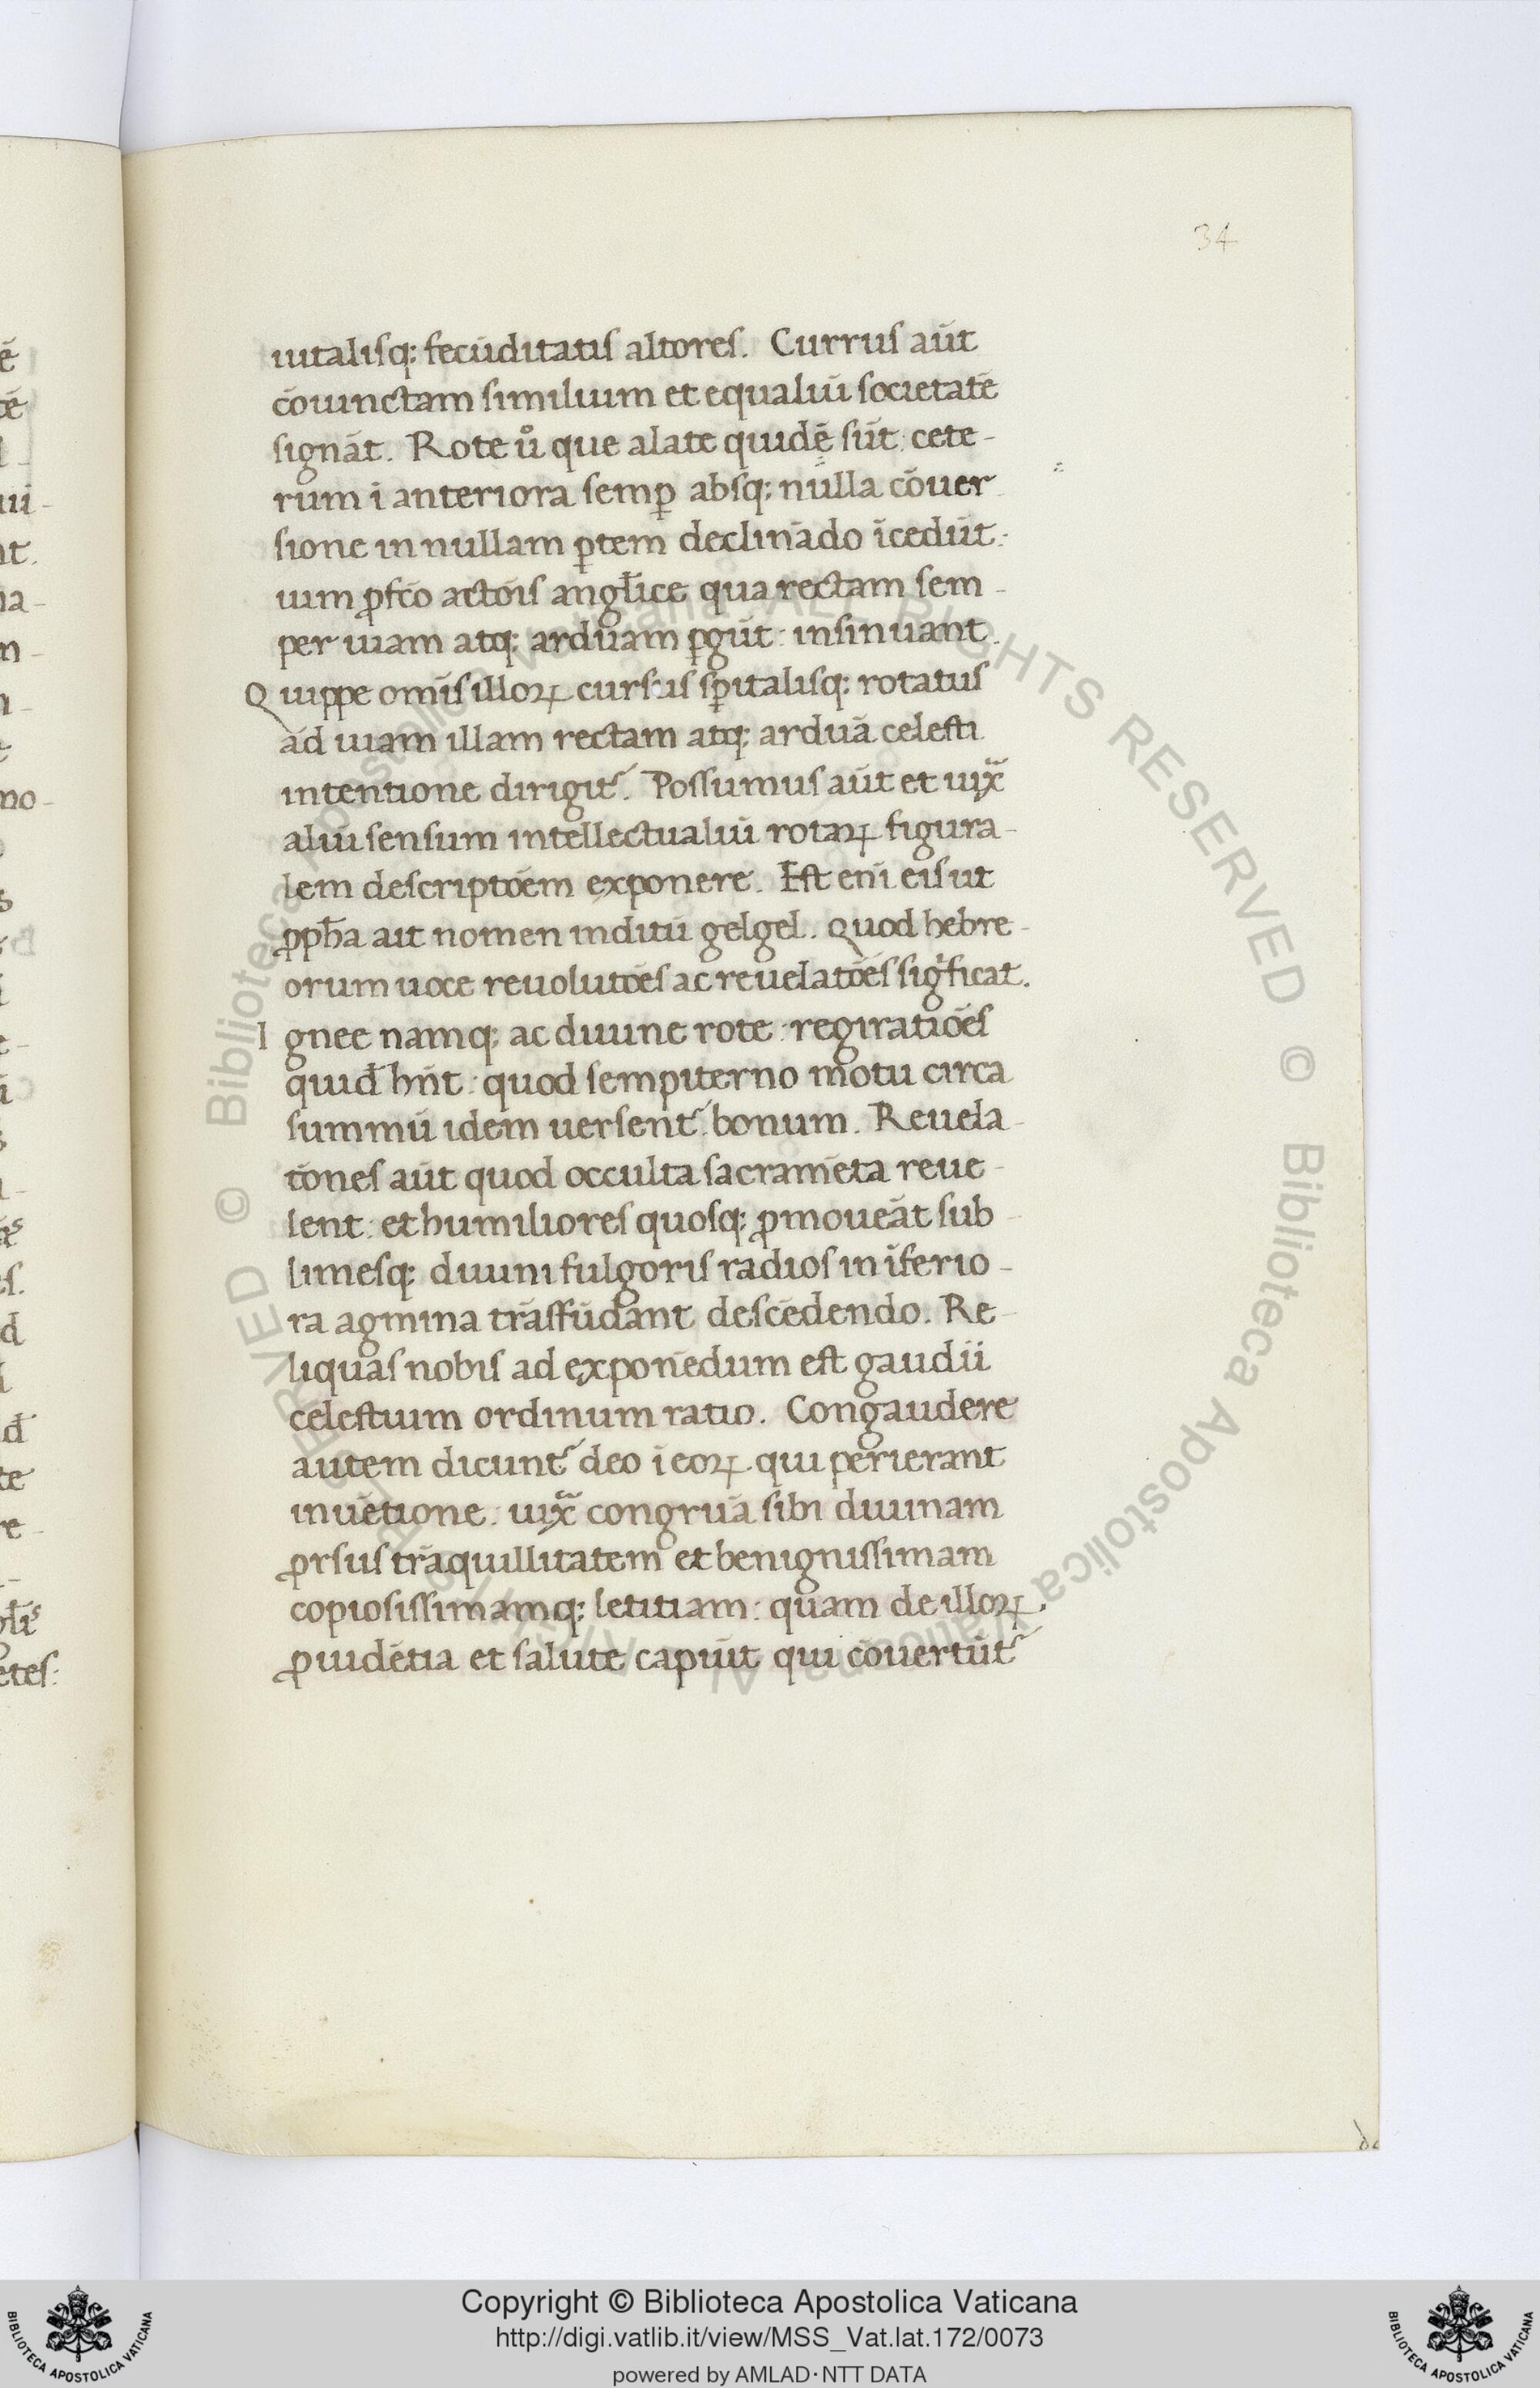 34
iutalisq; fecūditatis altores. Currus aūt
cōiunctam similium et equaliū societatē
signāt. Rote ů que alate quidē sūt: cete-
rum ī anteriora semꝑ absq; nulla cōuer
sione in nullam ꝑtem declinādo īcedūt:
uim ꝓfc̄o actōis angl̄ice qua rectam sem-
per uiam atq; arduam ꝑgūt: insinuant.
Quippe om̄is illoꝝ cursus sꝑitalisq; rotatus
ad uiam illam rectam atq; arduā celesti
intentione dirigit᷑. Possumus aūt et uix̄
aliū sensum intellectualiū rotaꝝ figura-
lem descriptōem exponere. Est eni̅ eis ut
ꝓph̄a ait nomen inditū gelgel. Quod hebre-
orum uoce reuolutōes ac reuelatōes sigͥficat.
Ignee namq; ac diuine rote: regiratiōes
quid̄ hn̄t: quod sempiterno motu circa
summū idem uersent᷑ bonum. Reuela-
tōnes aūt quod occulta sacramēta reue-
lent: et humiliores quosq; ꝓmoueāt sub-
limesq; diuini fulgoris radios in īferio-
ra agmina trāsfūdant descēdendo. Re-
liquas nobis ad exponēdum est gaudii
celestium ordinum ratio. Congaudere
autem dicunt᷑ deo ī eoꝝ qui perierant
inuētione: uix̄ congruā sibi diuinam
ꝓrsus trāquillitatem et benignissimam
copiosissimamq; letitiam: quam de illoꝝ
ꝓuidētia et salute capiūt qui cōuertūt᷑
Copyright © Biblioteca Apostolica Vaticana
http://digi.vatlib.it/view/MSS_Vat.lat.172/0073
powered by AMLAD·NTT DATA